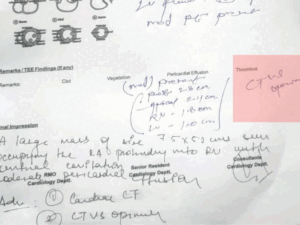 mod
Remarks / TEE Findings (if any)
Vegetation
Pericardial Effusion
Thrombus
Remarks: Clot
(mod) present
post 2.8 cm
CTVS
opinion
RV - 1.8 cm
LV - 1.0 cm
Final Impression
A large mass of size 7 x 5 cm seen
occupying the RA protruding into RV with
central cavitation
Moderate pericardial effusion
RMO Senior Resident Consultants
Cardiology Deptt. Cardiology Deptt. Cardiology Deptt.
Adv: ① Cardiac CT
② CTVS opinion